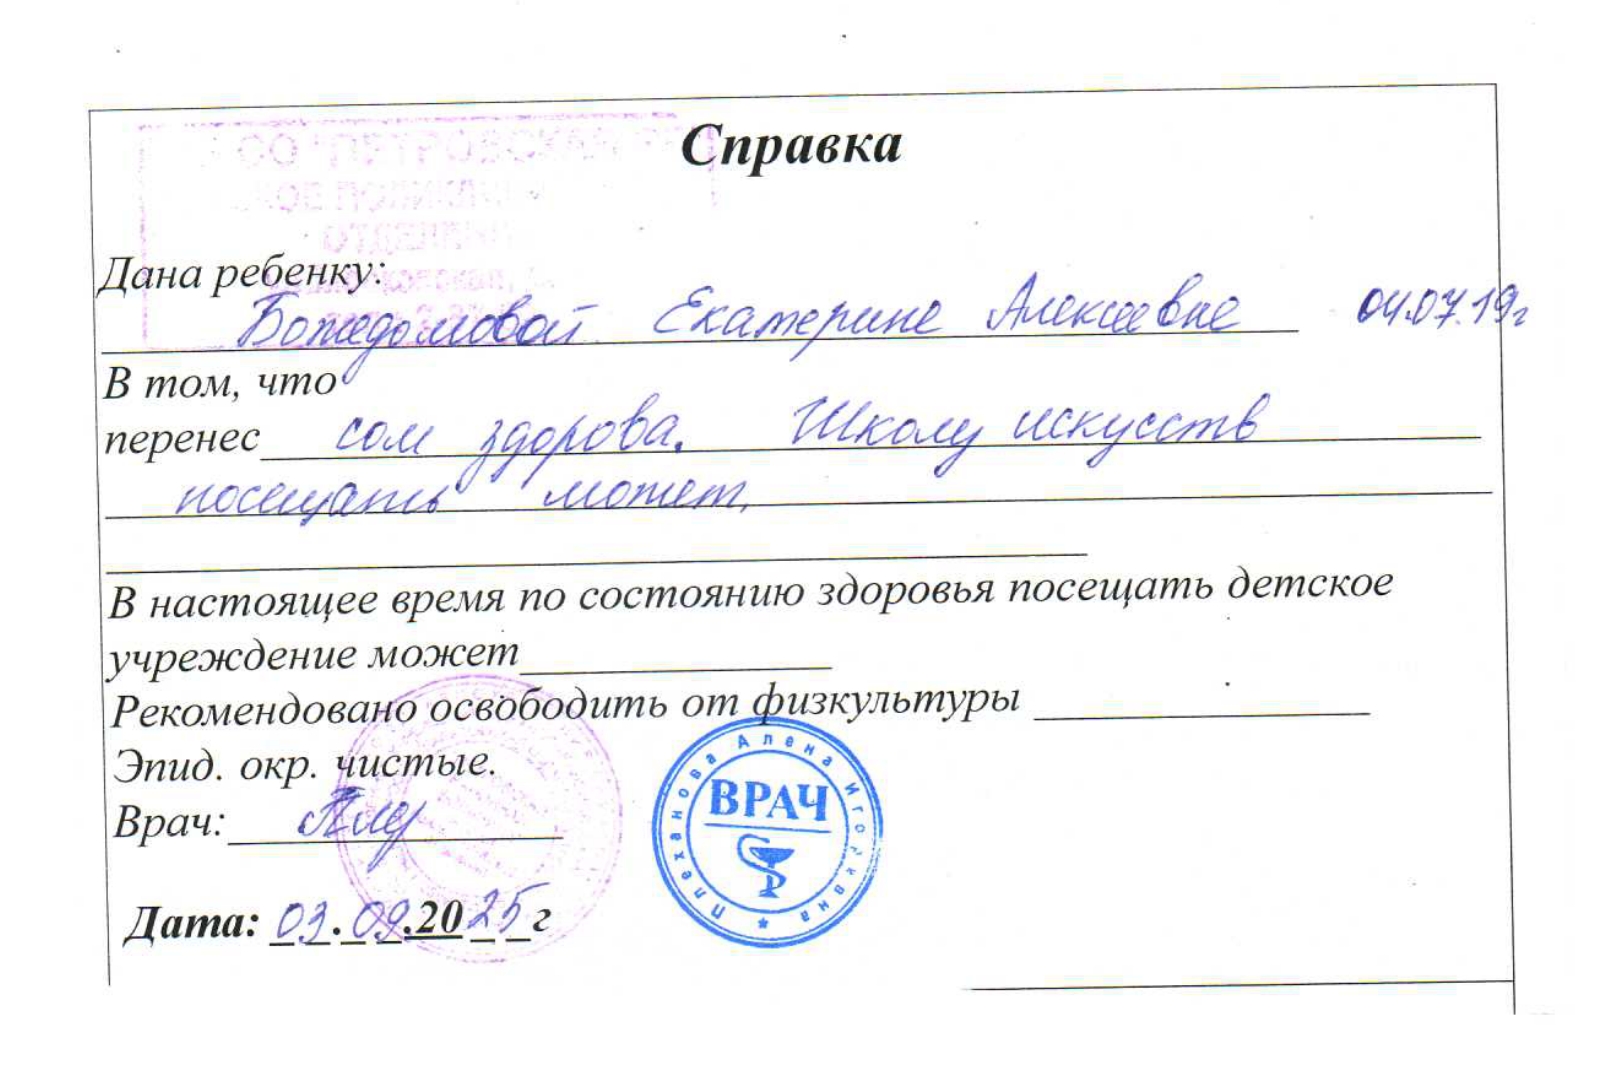 Справка
Дана ребенку:
Божедомовой Екатерине Алексеевне 04.07.19г
В том, что
перенес сом здорова. Школу искусств
посещать может.
В настоящее время по состоянию здоровья посещать детское
учреждение может
Рекомендовано освободить от физкультуры
Эпид. окр. чистые.
Врач:
Плеханова Алена Игоревна
ВРАЧ
Дата: 03.09.2025г